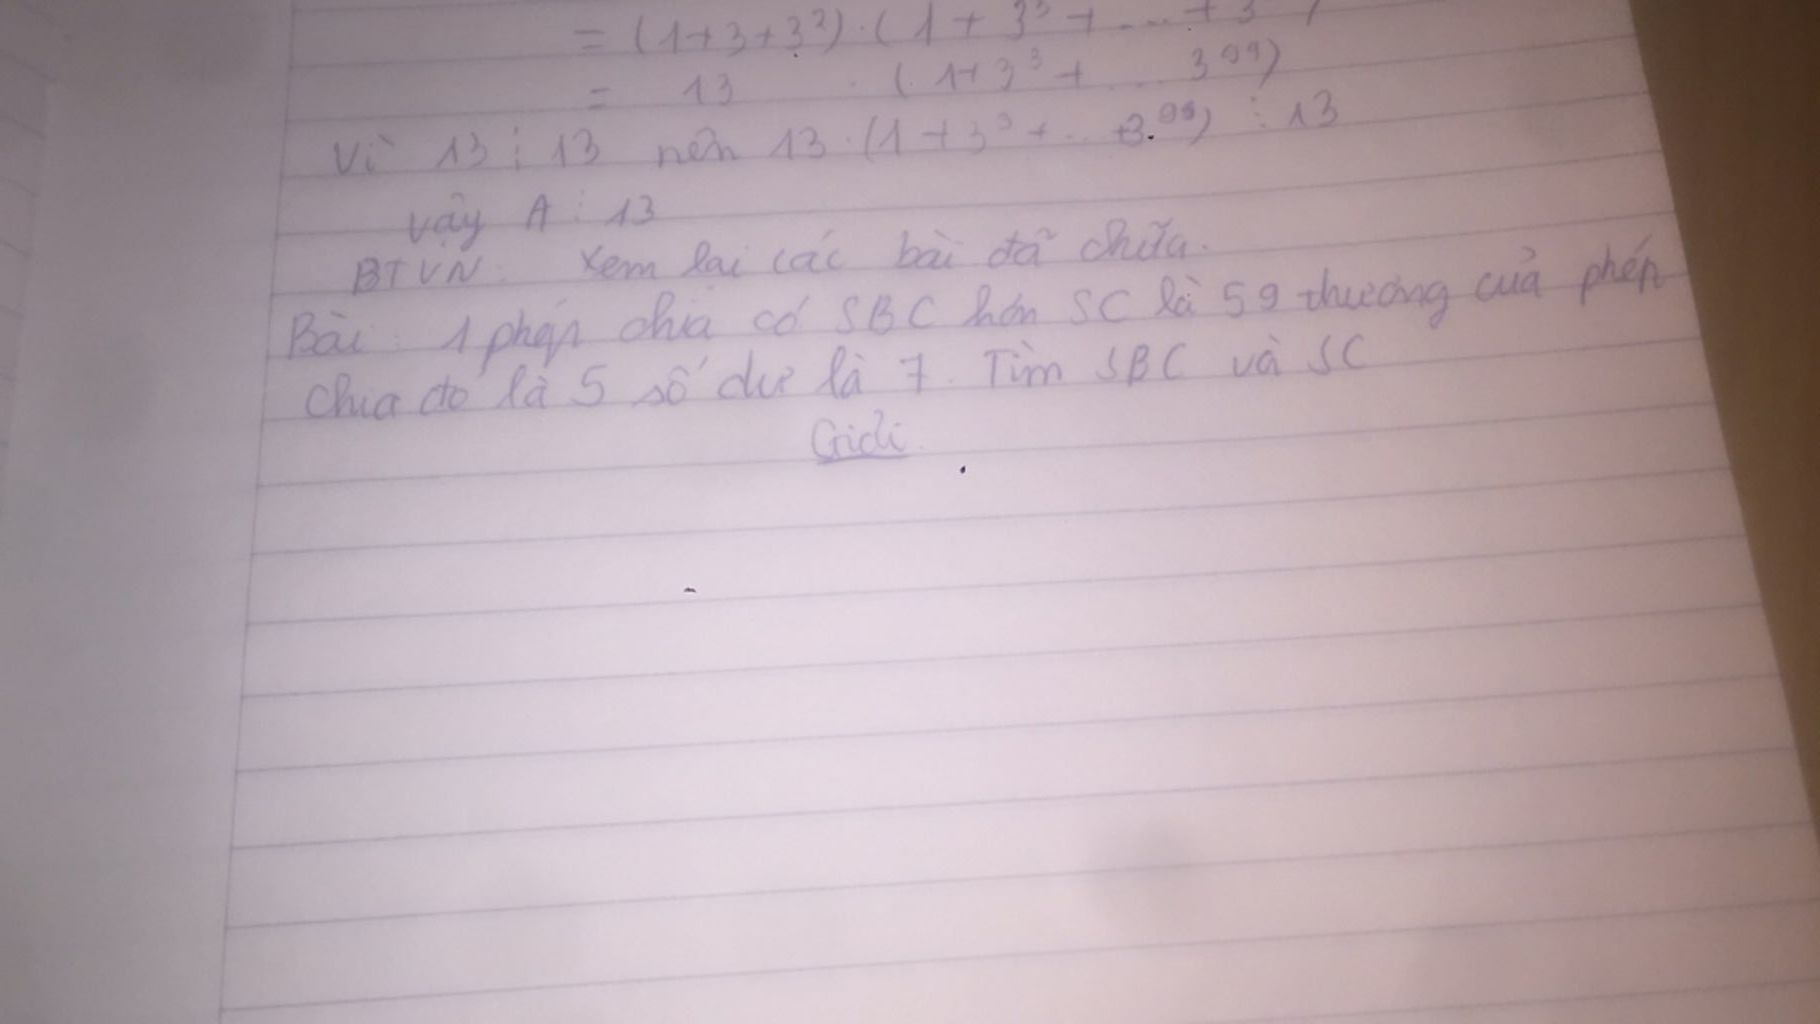 = (1+3+3²).(1+3³+...+3
= 13 . (1+3³+...3⁹⁹)
Vì 13 ⋮ 13 nên 13.(1+3³+..+3.⁹⁹) ⋮ 13
vậy A ⋮ 13
BTVN: Xem lại các bài đã chữa.
Bài: 1 phép chia có SBC hơn SC là 59 thương của phép
chia đó là 5 số dư là 7. Tìm SBC và SC
Giải